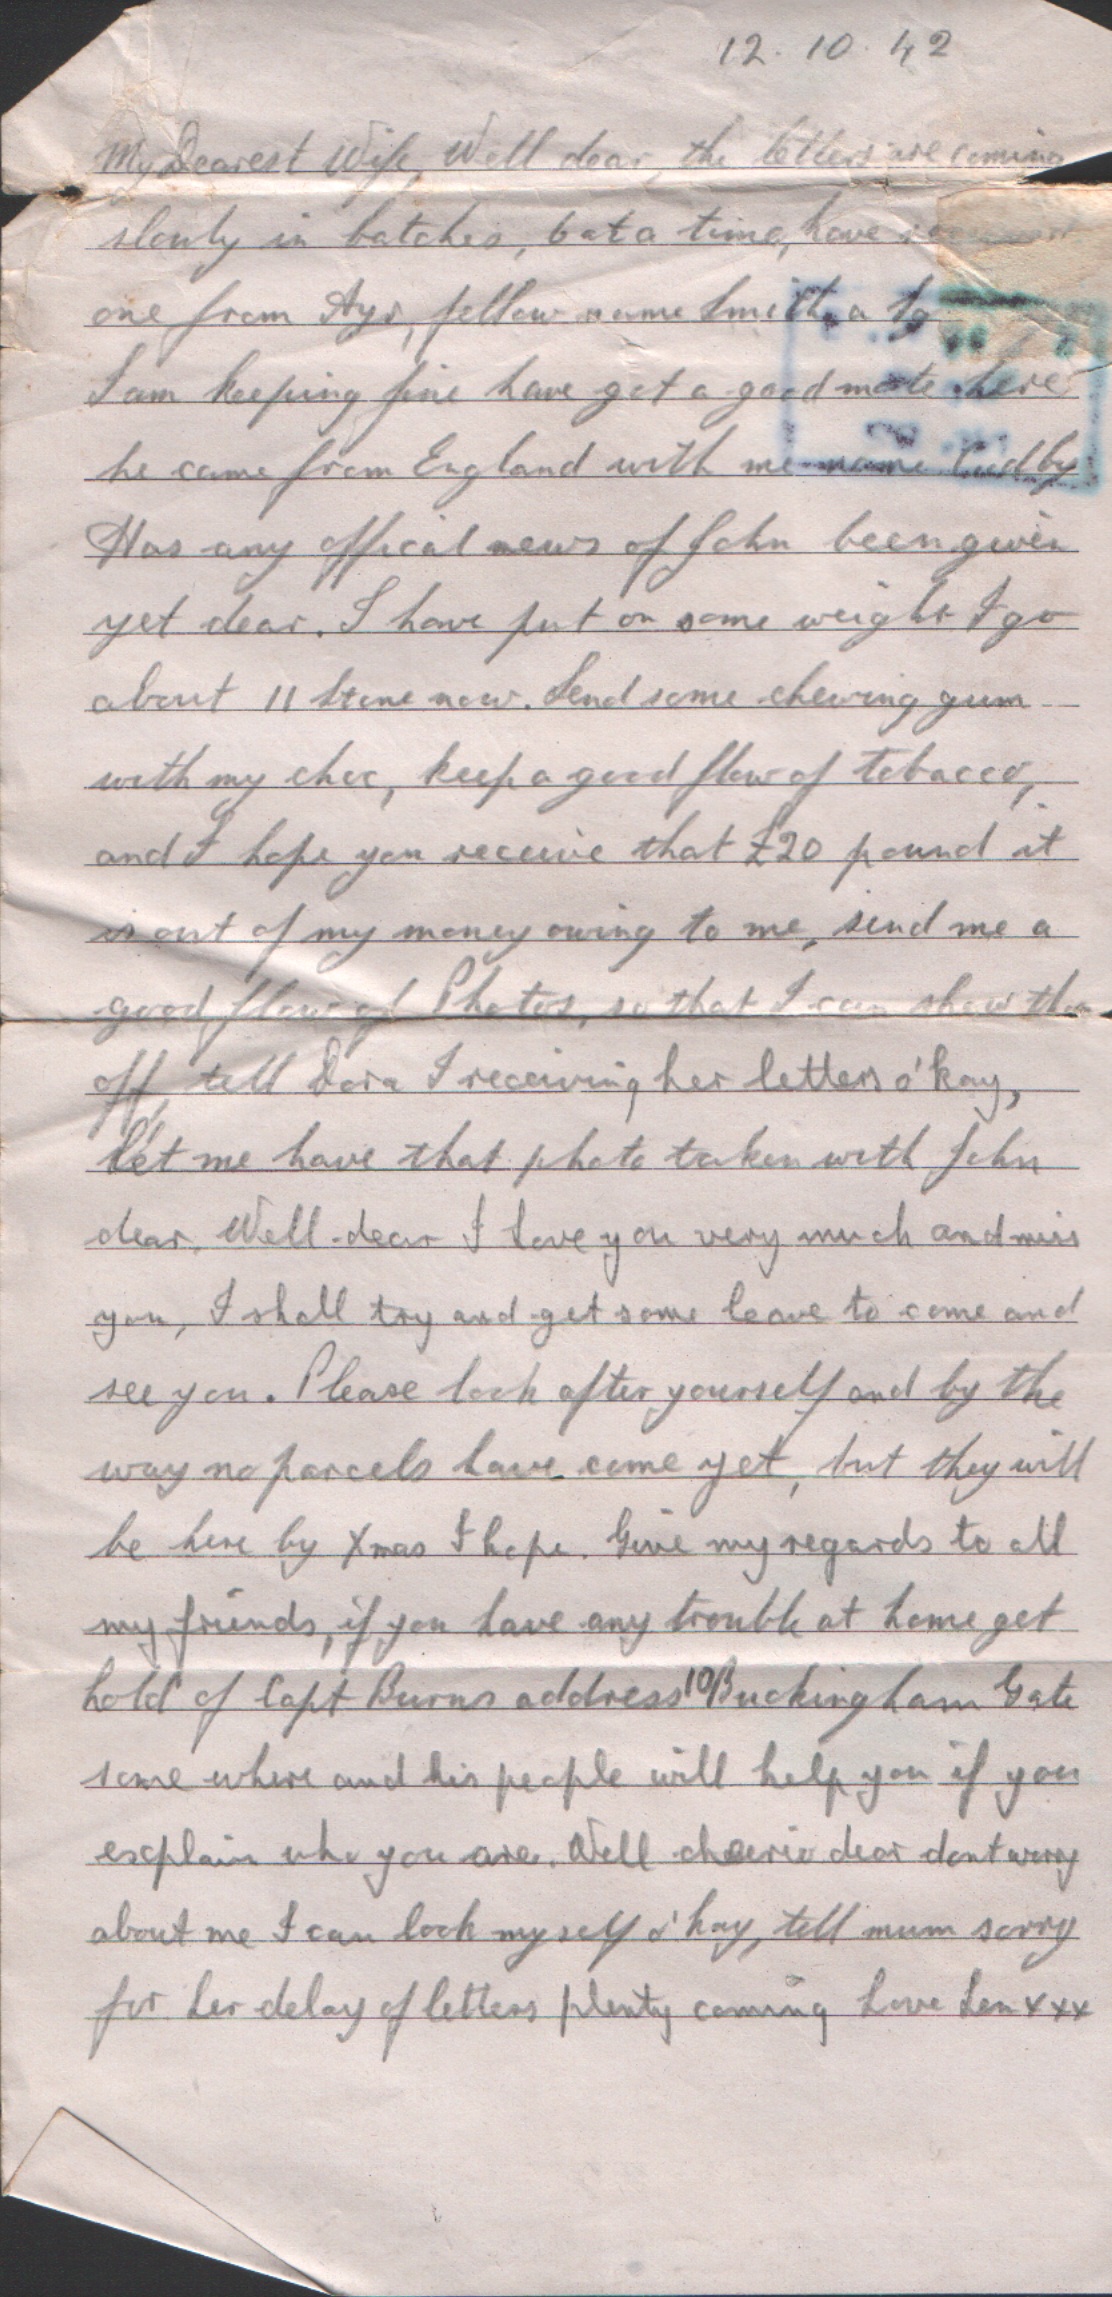 12. 10. 42
My Dearest Wife, Well dear, the letters are coming
slowly in batches, 6 at a time, have
one from Ayr, fellow name Smith, a
I am keeping fine have got a good mate here
he came from England with me name
Has any offical news of John been given
yet dear. I have put on some weight I go
about 11 stone now. Send some chewing gum
with my choc, keep a good flow of tobacco,
and I hope you receive that £20 pound it
is out of my money owing to me, send me a
good flow of Photos, so that I can show them
off, tell Dora I receiving her letters o'kay,
let me have that photo taken with John
dear. Well dear I love you very much and miss
you, I shall try and get some leave to come and
see you. Please look after yourself and by the
way no parcels have come yet, but they will
be here by Xmas I hope. Give my regards to all
my friends, if you have any trouble at home get
hold of Capt Burns address 10 Buckingham Gate
some where and his people will help you if you
explain who you are. Well cheerio dear dont worry
about me I can look myself o'kay, tell mum sorry
for her delay of letters plenty coming Love Len xxx